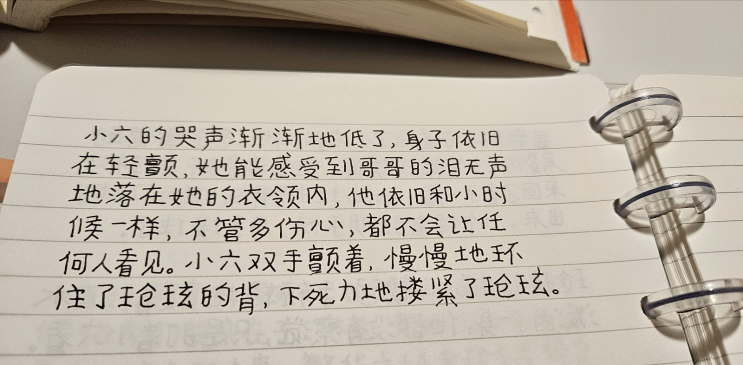 小六的哭声渐渐地低了,身子依旧
在轻颤,她能感受到哥哥的泪无声
地落在她的衣领内,他依旧和小时
候一样,不管多伤心,都不会让任
何人看见。小六双手颤着,慢慢地环
住了玱玹的背,下死力地搂紧了玱玹。